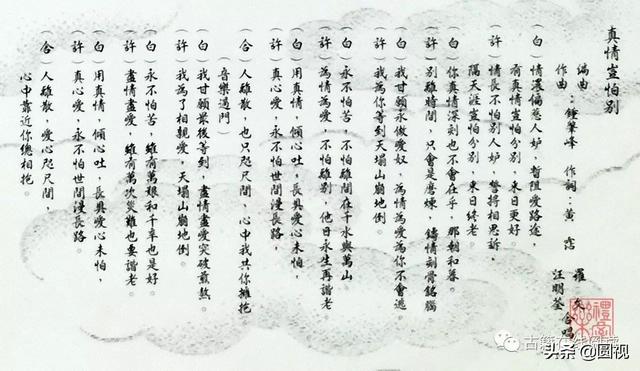 真情豈怕别
編曲
作曲：鍾肇峰　作詞：黄霑
羅文
汪明荃　合唱
（白）情濃偏惹人妒，暫阻愛路途，
有真情豈怕分别，來日更好。
（許）情長不怕别人妒，暫将相思訴，
隔天涯豈怕分别，來日終老。
（白）你真情深刻也不會在乎，那朝和暮。
（許）别離時間，只會是磨煉，鑄情刻骨銘
（白）我甘願永做愛奴，為情為愛為你不會逃
（許）我為你等到天塌山崩地倒。
（白）永不怕苦，不怕離間在千水與萬山。
（許）為情為愛，不怕離别，他日永生再諧老
（白）用真情，傾心吐，長具愛心未怕，
（許）真心愛，永不怕世間漫長路，
（合）人離散，也只咫尺間，心中我共你擁抱
音樂過門）
（白）我甘願㝡後等到，盡情盡愛突破煎熬。
（許）我為了相親愛，天塌山崩地倒。
（白）永不怕苦，縱有萬艱和千辛也是好。
（許）盡情盡愛，縱有萬次災難也要諧老。
（白）用真情，傾心吐，長具愛心未怕，
（許）真心愛，永不怕世間漫長路。
（合）人離散，愛心咫尺間，
心中靠近你總相抱。
禮樂
古籍在线
头条@圆视